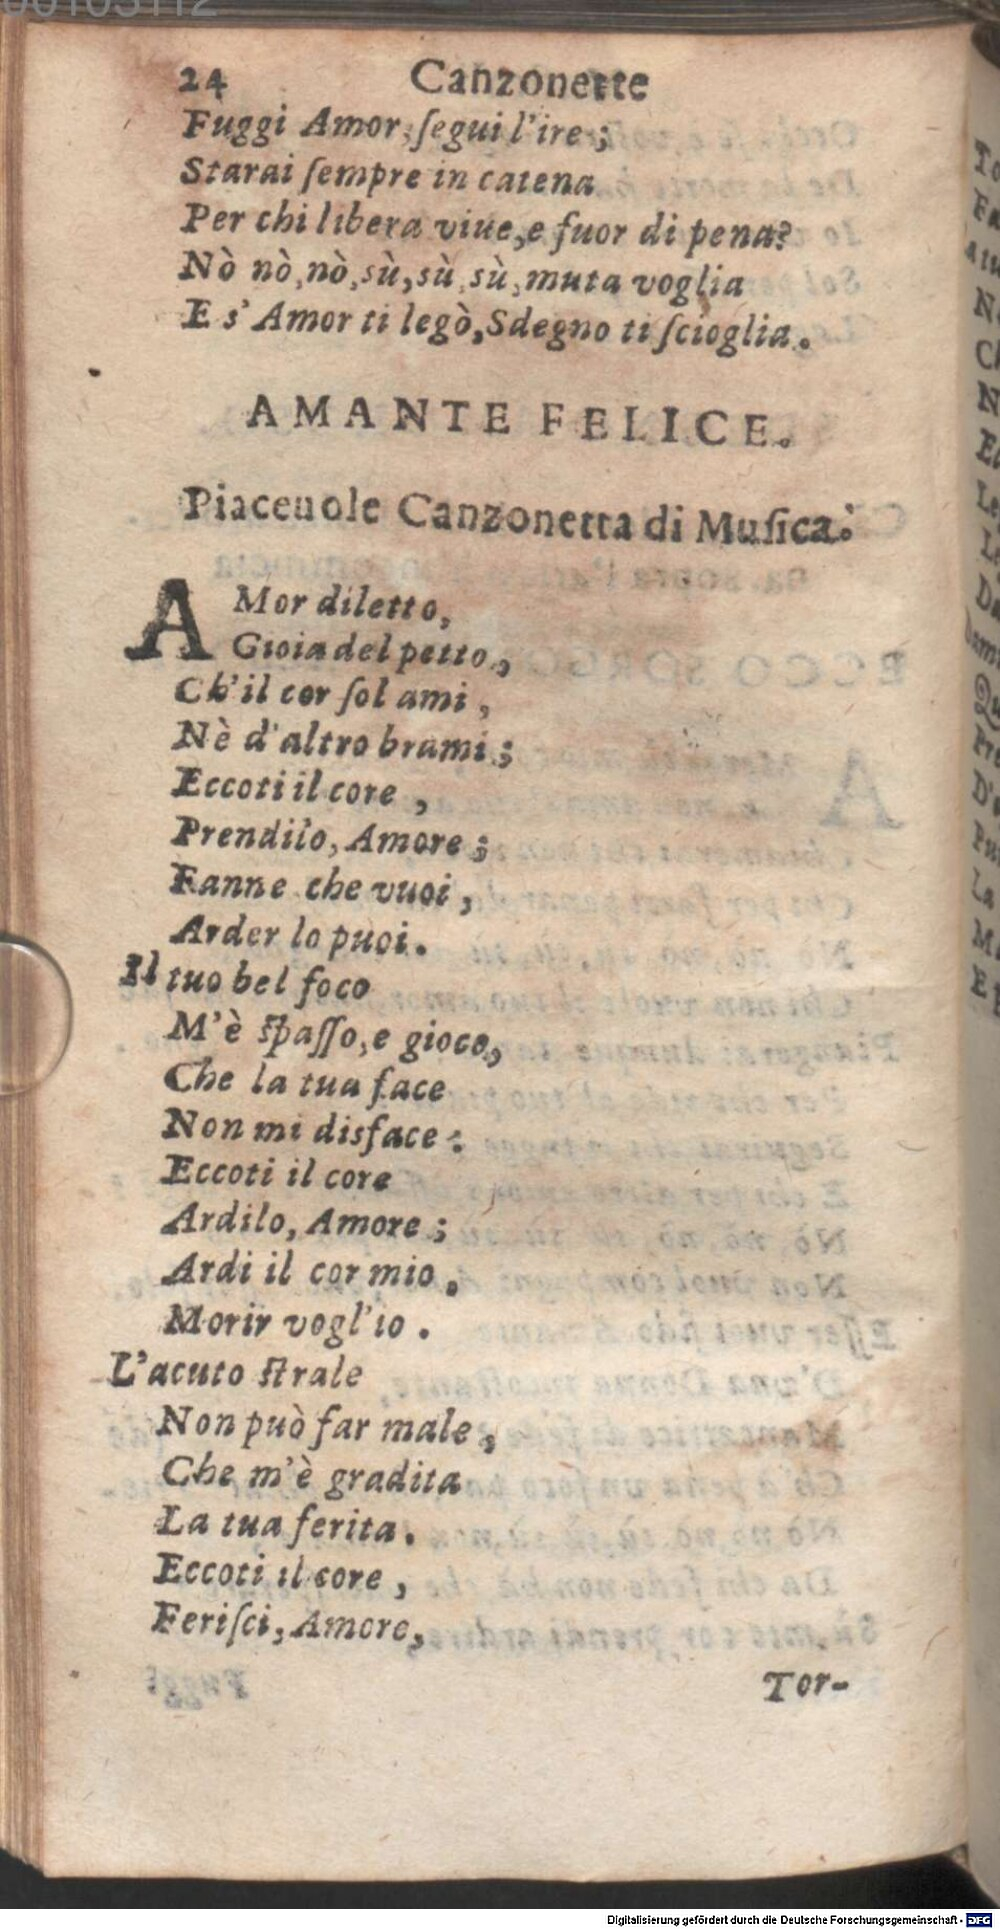 00105112
24 Canzonette
Fuggi Amor, ſegui l'ire;
Starai ſempre in catena
Per chi libera viue, e fuor di pena?
Nò nò, nò, sù, sù, sù, muta voglia
E s' Amor ti legò, Sdegno ti ſcioglia.
AMANTE FELICE.
Piaceuole Canzonetta di Muſica.
AMor diletto,
Gioia del petto,
Ch'il cor ſol ami,
Nè d'altro brami;
Eccoti il core,
Prendilo, Amore;
Fanne che vuoi,
Arder lo puoi.
Il tuo bel foco
M'è ſpaſſo, e gioco,
Che la tua face
Non mi disface:
Eccoti il core
Ardilo, Amore;
Ardi il cor mio,
Morir vogl'io.
L'acuto ſtrale
Non può far male,
Che m'è gradita
La tua ferita.
Eccoti il core,
Feriſci, Amore,
Tor-
Digitalisierung gefördert durch die Deutsche Forschungsgemeinschaft - DFG